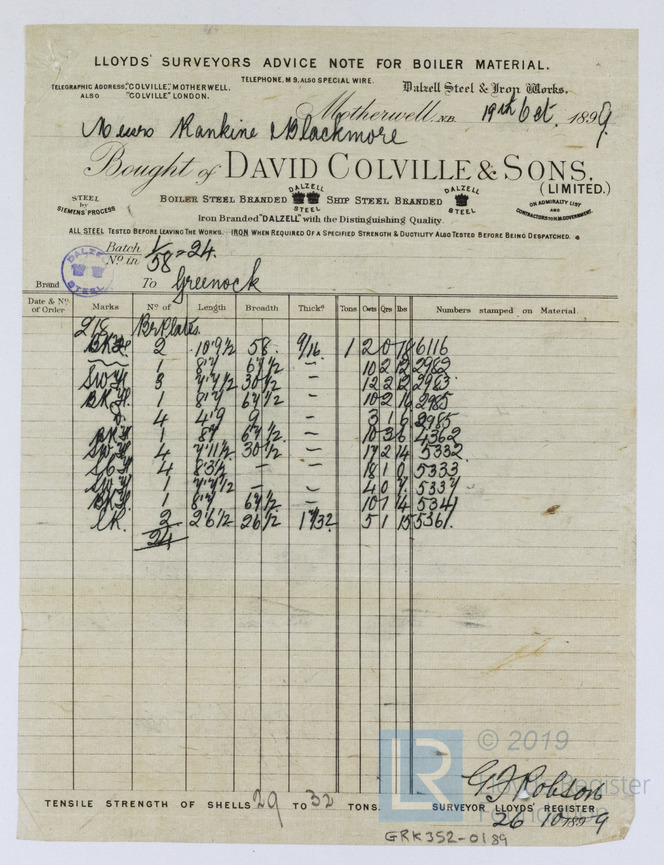 LLOYDS' SURVEYORS ADVICE NOTE FOR BOILER MATERIAL.
TELEPHONE, M 9. ALSO SPECIAL WIRE.
TELEGRAPHIC ADDRESS, "COLVILLE", MOTHERWELL.
ALSO "COLVILLE" LONDON.
Dalzell Steel & Iron Works.
Motherwell, N.B. 19th Oct. 1899.
Messrs Rankine & Blackmore
Bought of DAVID COLVILLE & SONS.
(LIMITED.)
STEEL by SIEMENS PROCESS
BOILER STEEL BRANDED DALZELL STEEL SHIP STEEL BRANDED DALZELL STEEL
ON ADMIRALTY LIST AND CONTRACTORS TO H.M. GOVERNMENT.
Iron Branded "DALZELL" with the Distinguishing Quality.
ALL STEEL TESTED BEFORE LEAVING THE WORKS. IRON WHEN REQUIRED OF A SPECIFIED STRENGTH & DUCTILITY ALSO TESTED BEFORE BEING DESPATCHED.
Batch 1/58 = 24.
Nº in
DALZELL STEEL
Brand To Greenock
Date & Nº of Order Marks Nº of Length Breadth Thickˢ Tons Cwts Qrs lbs Numbers stamped on Material
218 Blr Plates
2 10'9½ 58 9/16 1 2 0 18 6116
1 8'7 67½ — 10 2 12 2982
3 7'7½ 30½ — 12 2 12 2983
1 8'7 67½ — 10 2 16 2985
4 4'9 9 — 3 1 6 2985
1 8'7 67½ — 10 3 6 4362
4 7'11½ 30½ — 17 2 14 5332
4 8'3½ — — 18 1 0 5333
1 7'7½ — — 4 0 7 5337
1 8'7 67½ — 10 1 14 5341
2 2'6½ 26½ 5 1 15 5361.
24
© 2019
Lloyd's Register
Foundation
LR
G J Robson
TENSILE STRENGTH OF SHELLS 29 TO 32 TONS. SURVEYOR LLOYDS' REGISTER
26 10 1899
GRK352-0189